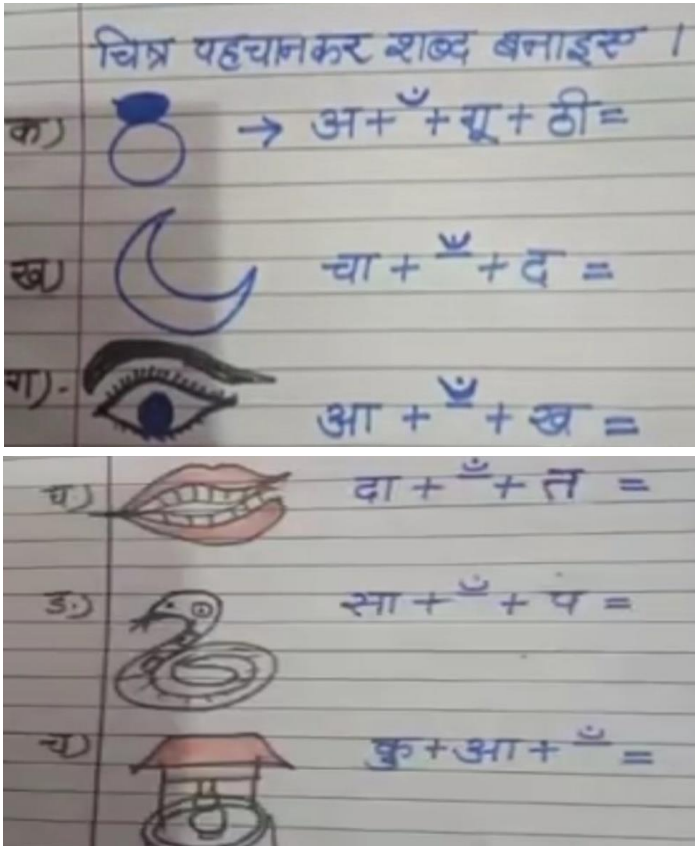 चित्र पहचानकर शब्द बनाइए ।
क) → अ + ँ + गू + ठी =
ख) चा + ँ + द =
ग). आ + ँ + ख =
घ.) दा + ँ + त =
ङ.) सा + ँ + प =
च) कु + आ + ँ =